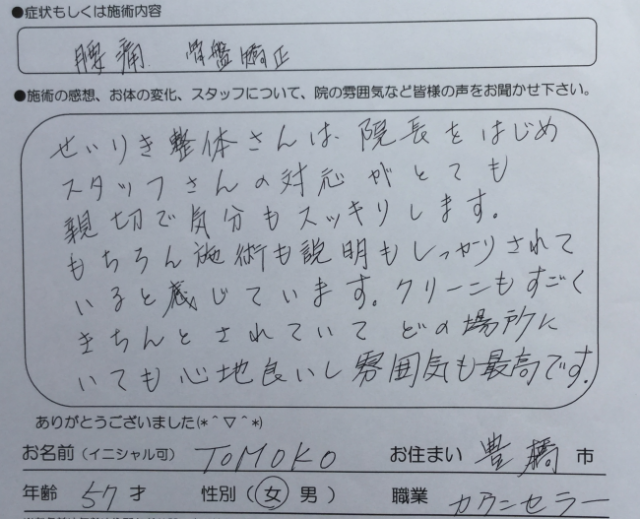 ●症状もしくは施術内容
腰痛 骨盤矯正
●施術の感想、お体の変化、スタッフについて、院の雰囲気など皆様の声をお聞かせ下さい。
せいりき整体さんは、院長をはじめ
スタッフさんの対応がとても
親切で気分もスッキリします。
もちろん施術も説明もしっかりされて
いると感じています。クリーンもすごく
きちんとされていてどの場所に
いても心地良いし雰囲気も最高です。
ありがとうございました(*^▽^*)
お名前(イニシャル可) TOMOKO お住まい 豊橋 市
年齢 57 才 性別(女 男) 職業 カウンセラー